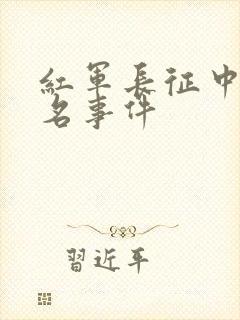 紅軍長征中
名事件
習近平